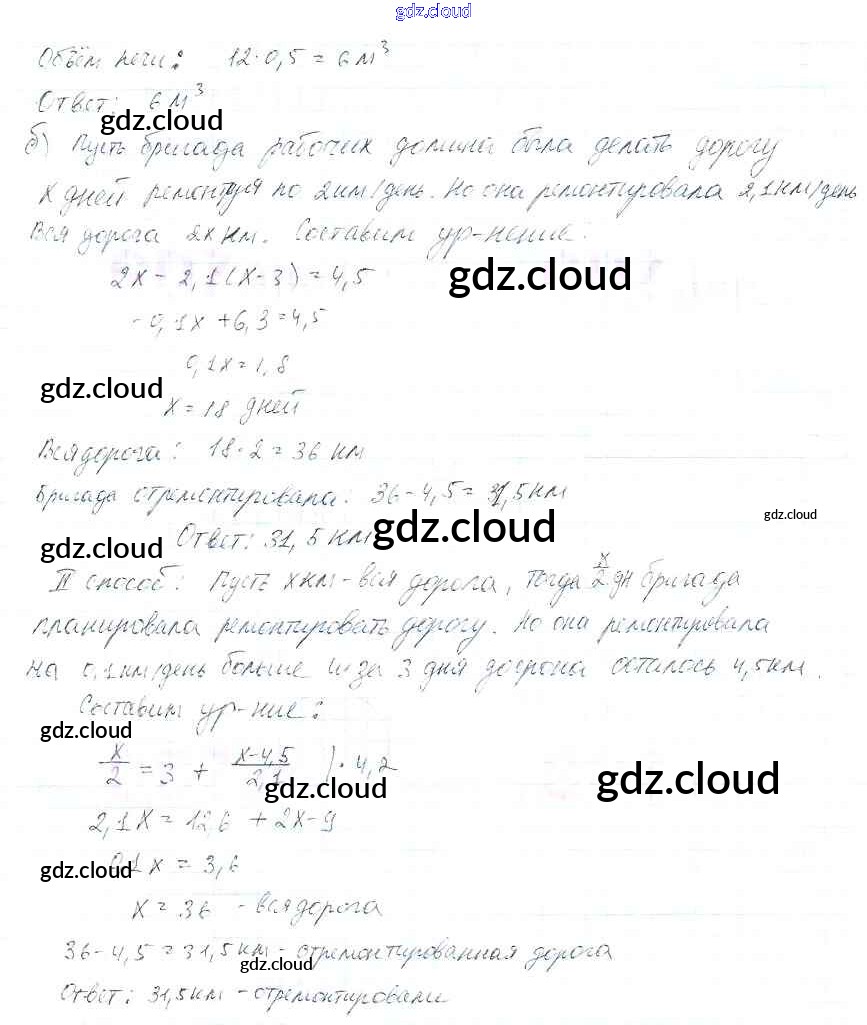 gdz.cloud
Объём печи: 12·0,5 = 6 м³
Ответ: 6 м³
gdz.cloud
б) Пусть бригада рабочих должна была делать дорогу
х дней ремонтируя по 2 км/день. Но она ремонтировала 2,1 км/день
Вся дорога 2х км. Составим ур-нение:
2х - 2,1(х-3) = 4,5
gdz.cloud
-0,1х + 6,3 = 4,5
0,1х = 1,8
gdz.cloud
х = 18 дней
Вся дорога: 18·2 = 36 км
Бригада отремонтировала: 36-4,5 = 31,5 км
gdz.cloud
gdz.cloud
Ответ: 31,5 км
gdz.cloud
II способ: Пусть х км - вся дорога, тогда х/2 дн бригада
планировала ремонтировать дорогу. Но она ремонтировала
на 0,1 км/день больше и за 3 дня до срока осталось 4,5 км.
Составим ур-ние:
gdz.cloud
х/2 = 3 + (х-4,5)/2,1 )·4,2
gdz.cloud
gdz.cloud
2,1х = 12,6 + 2х - 9
0,1х = 3,6
gdz.cloud
х = 36 - вся дорога
36-4,5 = 31,5 км - отремонтированная дорога
gdz.cloud
Ответ: 31,5 км - отремонтировали